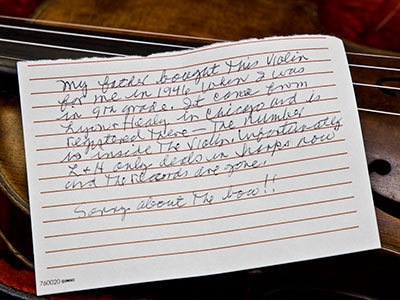 My father bought this violin
for me in 1946 when I was
in 9th grade. It come from
Lyon & Healy in Chicago and is
registered there — The number
is inside the violin. Unfortunately
L & H only deals in harps now
and the records are gone.
Sorry about the bow!!
760020